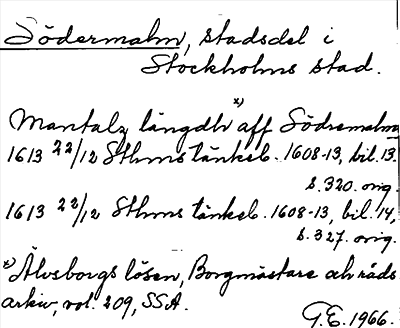 Södermalm, stadsdel i
Stockholms stad.
Mantalz längdh *) aff Södremalm
1613 22/12 Sthms tänkeb. 1608-13, bil. 13.
s. 320. orig.
1613 22/12 Sthms tänkeb. 1608-13, bil. 14,
s. 327. orig.
*) Älvsborgs lösen, Borgmästare och råds
arkiv, vol. 209, SSA.
G.E. 1966.